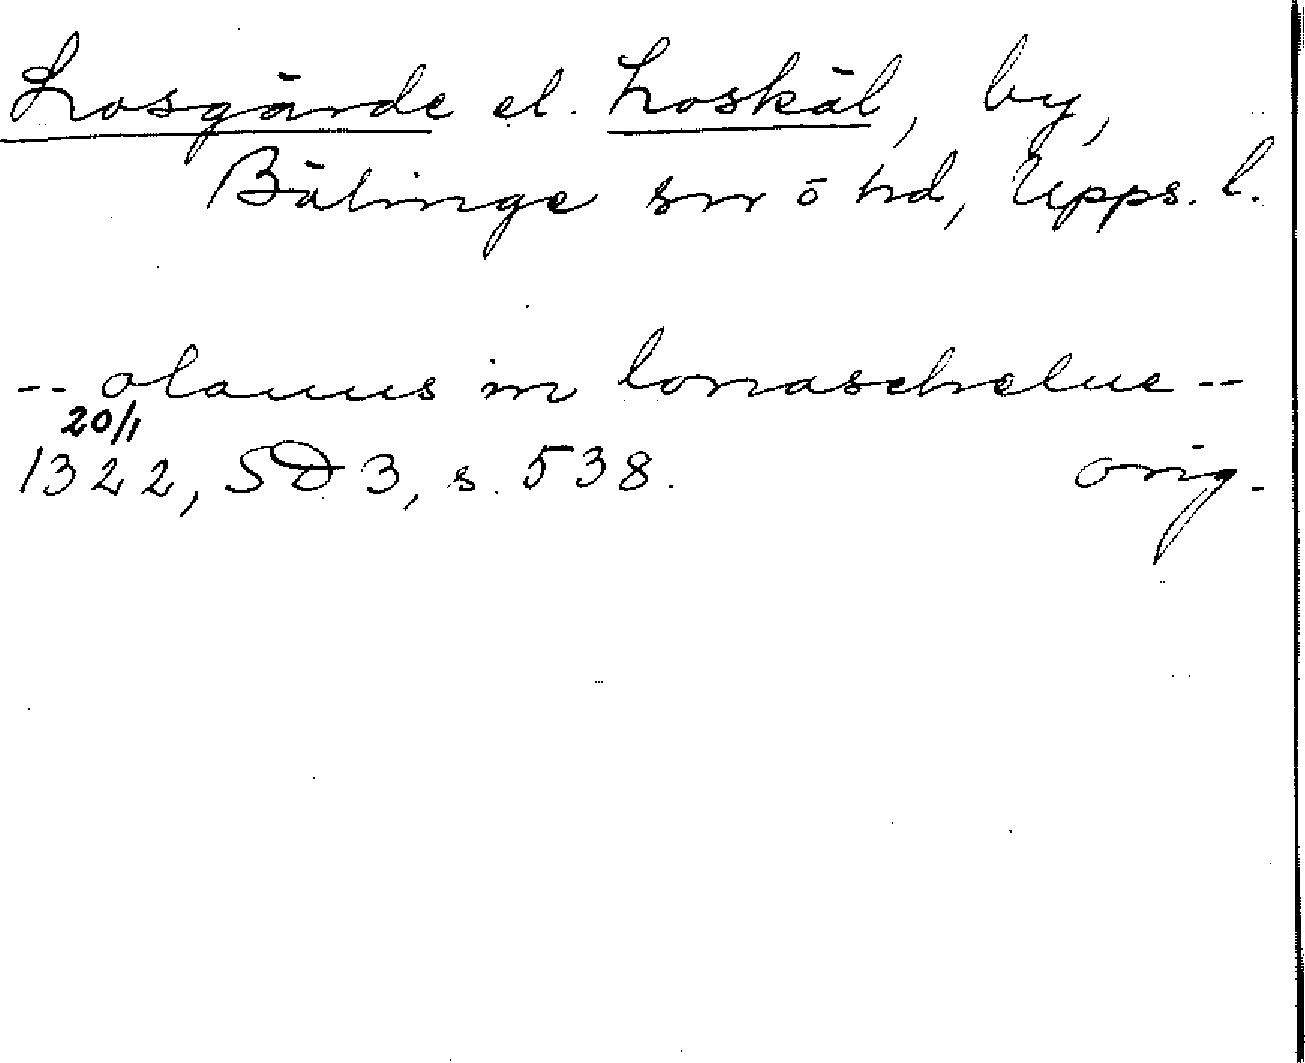 Losgärde el. Loskäl, by,
Bälinge sn ō hd, Upps. l.
-- olauus in lonaschelue --
20/1
1322, SD 3, s. 538. orig.